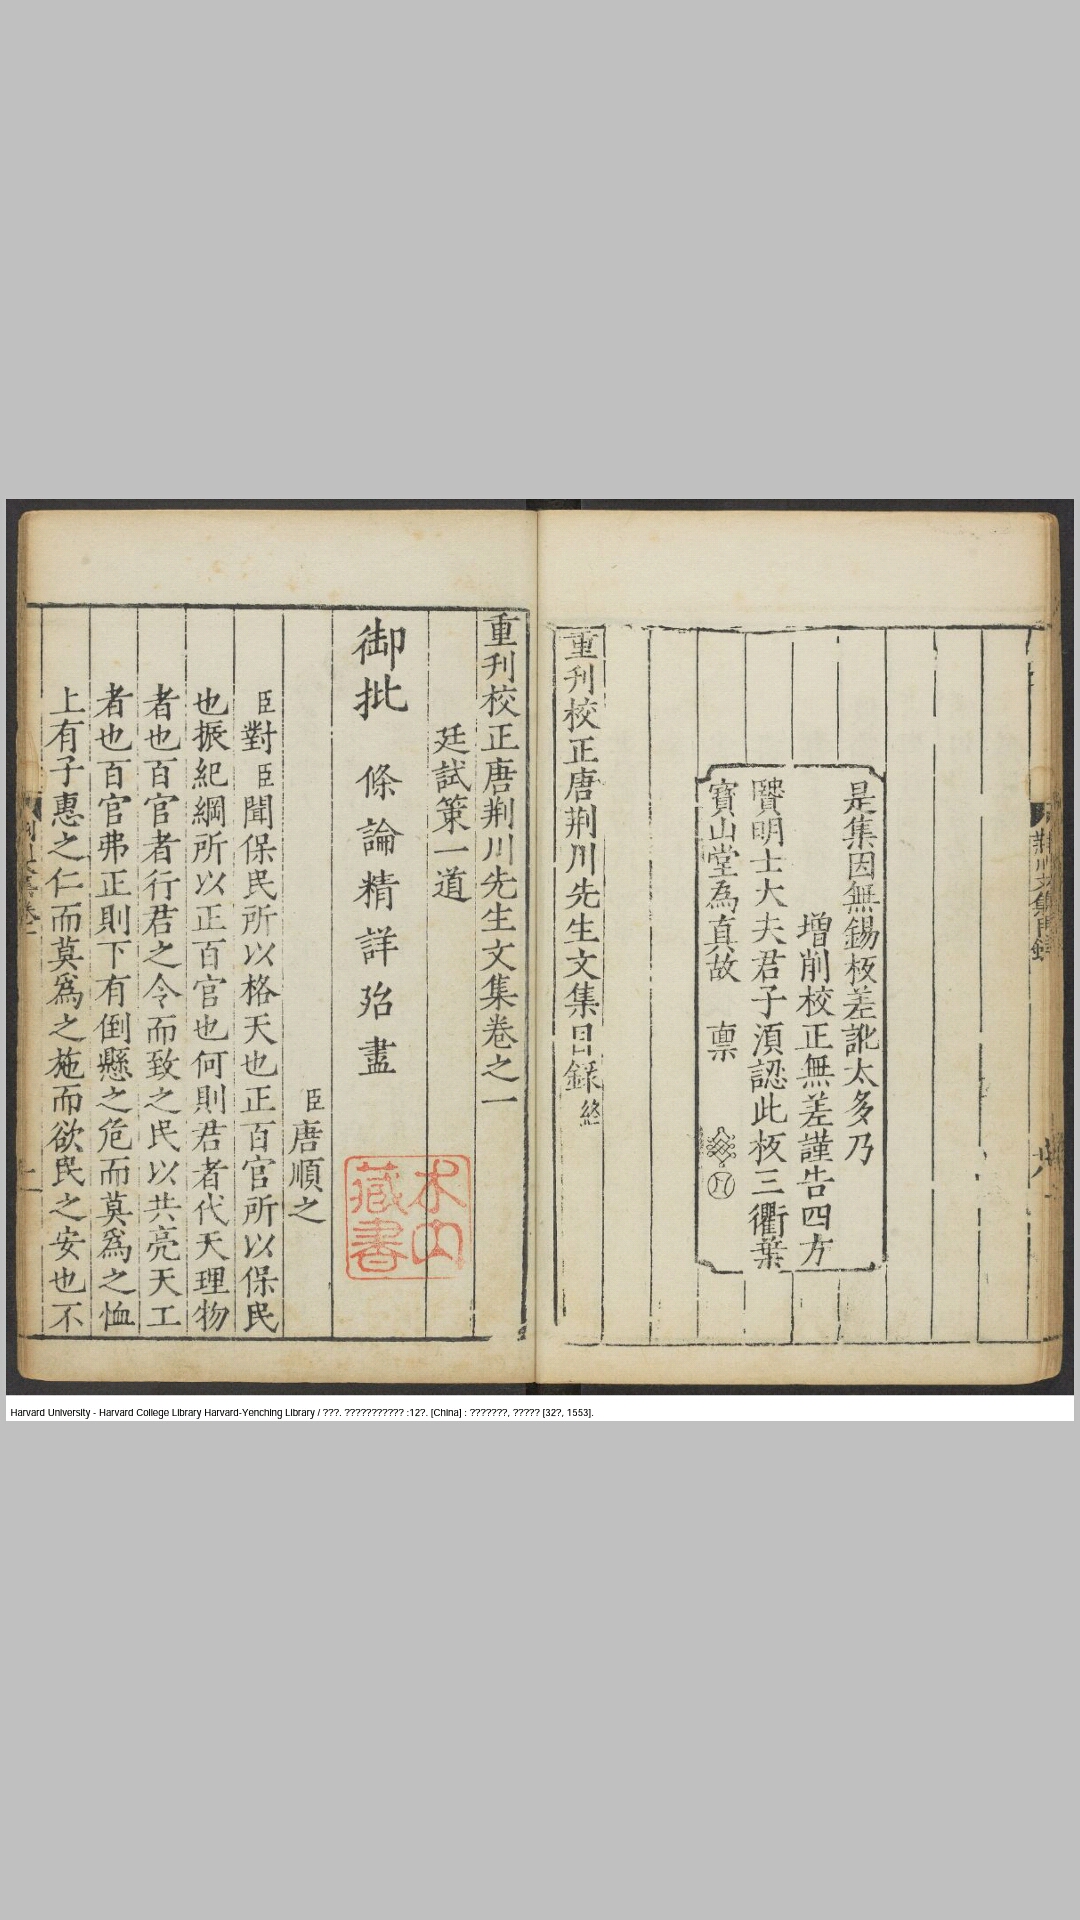 是集因無錫板差訛太多乃
增削校正無差謹告四方
賢明士大夫君子湏認此板三衢葉
寶山堂為真故 禀
重刊校正唐荆川先生文集目錄終
荆川文集目錄
重刊校正唐荆川先生文集卷之一
廷試策一道
御批 條論精詳殆盡
臣唐順之
臣對臣聞保民所以格天也正百官所以保民
也振紀綱所以正百官也何則君者代天理物
者也百官者行君之令而致之民以共亮天工
者也百官弗正則下有倒懸之危而莫爲之恤
上有子惠之仁而莫爲之施而欲民之安也不
藏書
Harvard University - Harvard College Library Harvard-Yenching Library / ???. ??????????? :12?. [China] : ???????, ????? [32?, 1553].